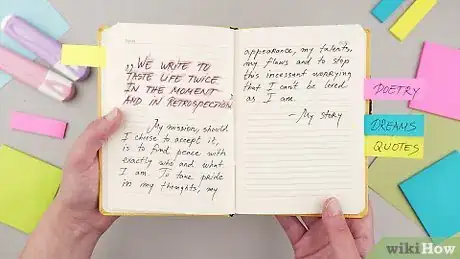 „WE WRITE TO
TASTE LIFE TWICE
IN THE MOMENT
AND IN RETROSPECTION"
My mission, should
I choose to accept it,
is to find peace with
exactly who and what
I am. To take pride
in my thoughts, my
appearance, my talents,
my flaws and to stop
this incessant worrying
that I can't be loved
as I am.
- My story
POETRY
DREAMS
QUOTES
wikiHow